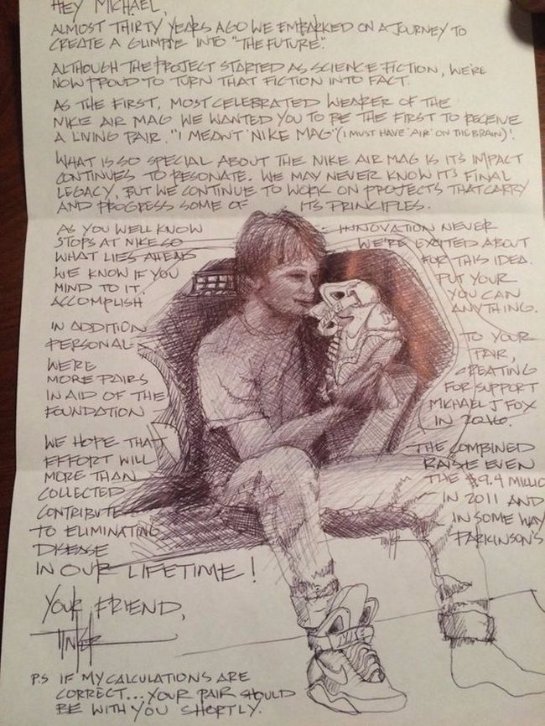 HEY MICHAEL,
ALMOST THIRTY YEARS AGO WE EMBARKED ON A JOURNEY TO
CREATE A GLIMPSE INTO "THE FUTURE".
ALTHOUGH THE PROJECT STARTED AS SCIENCE FICTION, WE'RE
NOW PROUD TO TURN THAT FICTION INTO FACT.
AS THE FIRST, MOST CELEBRATED WEARER OF THE
NIKE AIR MAG WE WANTED YOU TO BE THE FIRST TO RECEIVE
A LIVING PAIR. "I MEANT 'NIKE MAG" (I MUST HAVE 'AIR' ON THE BRAIN)!
WHAT IS SO SPECIAL ABOUT THE NIKE AIR MAG IS ITS IMPACT
CONTINUES TO RESONATE. WE MAY NEVER KNOW ITS FINAL
LEGACY, BUT WE CONTINUE TO WORK ON PROJECTS THAT CARRY
AND PROGRESS SOME OF ITS PRINCIPLES.
AS YOU WELL KNOW INNOVATION NEVER
STOPS AT NIKE SO WE'RE EXCITED ABOUT
WHAT LIES AHEAD FOR THIS IDEA.
WE KNOW IF YOU PUT YOUR
MIND TO IT, YOU CAN
ACCOMPLISH ANYTHING.
IN ADDITION TO YOUR
PERSONAL PAIR,
WE'RE CREATING
MORE PAIRS FOR SUPPORT
IN AID OF THE MICHAEL J FOX
FOUNDATION IN 2016.
WE HOPE THAT THE COMBINED
EFFORT WILL RAISE EVEN
MORE THAN THE $9.4 MILLIO
COLLECTED IN 2011 AND
CONTRIBUTE IN SOME WAY
TO ELIMINATING PARKINSON'S
DISEASE
IN OUR LIFETIME!
TINKER
YOUR FRIEND,
TINKER
PS IF MY CALCULATIONS ARE
CORRECT... YOUR PAIR SHOULD
BE WITH YOU SHORTLY.